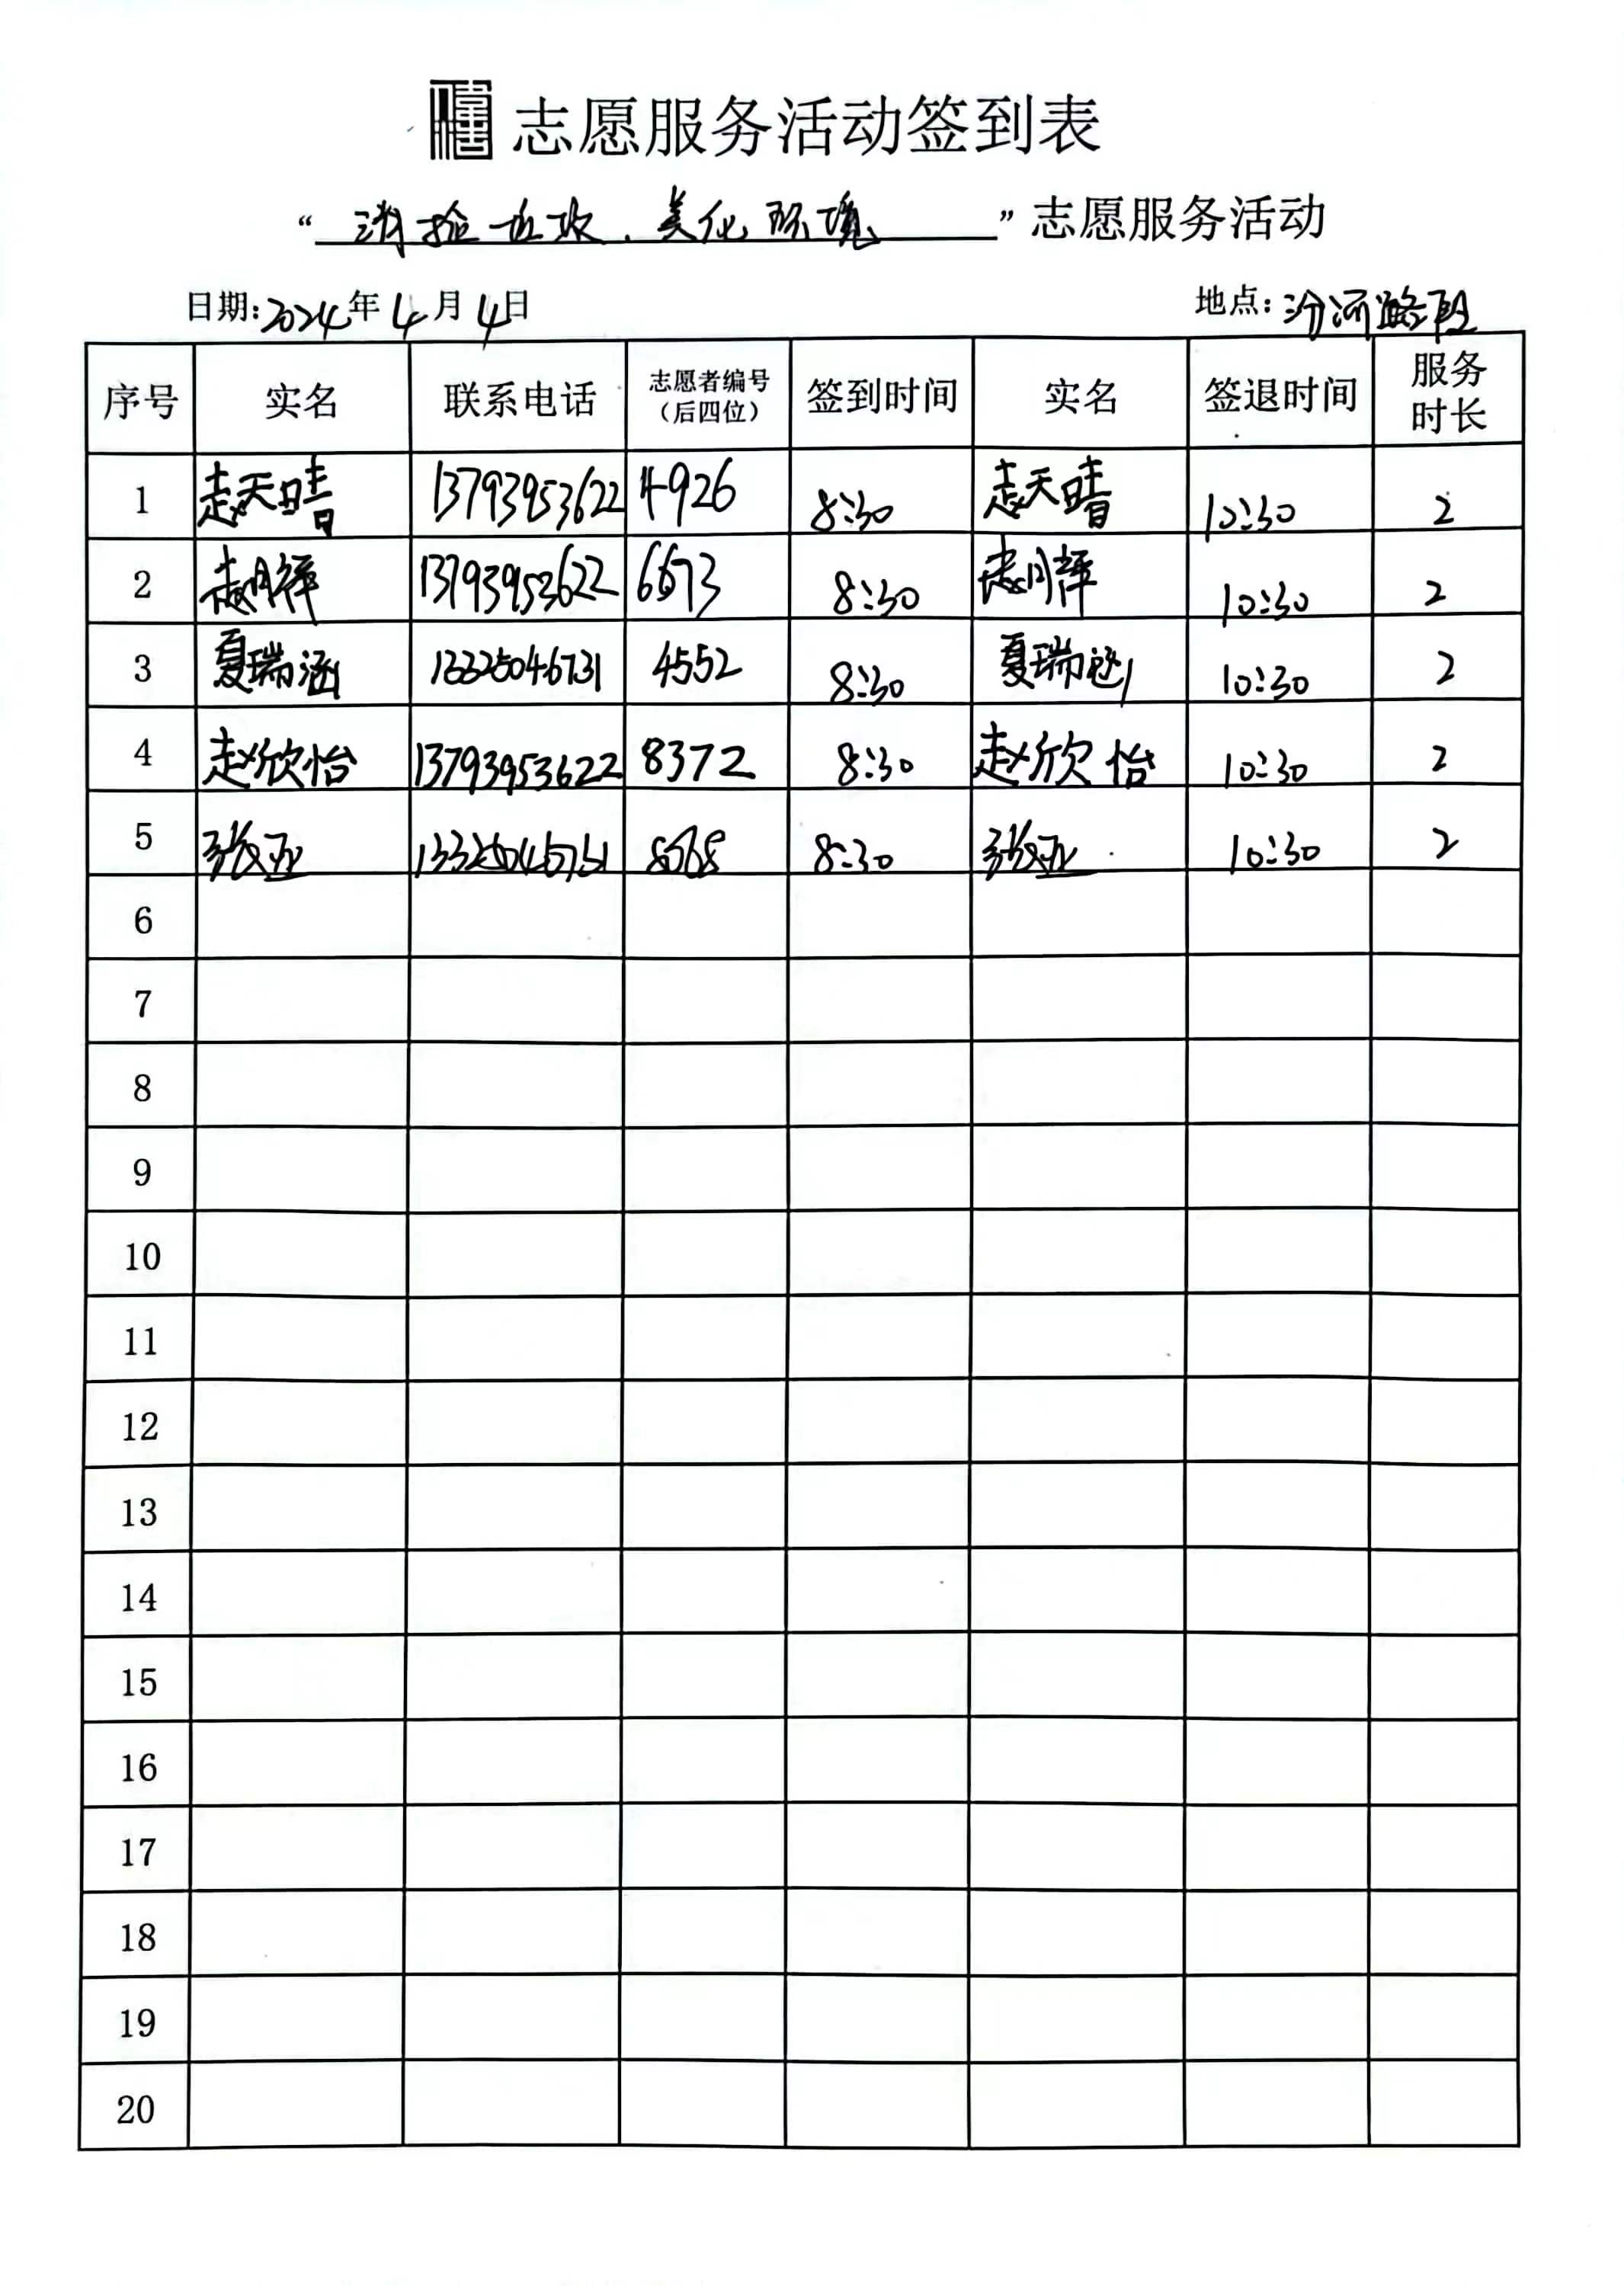 志愿服务活动签到表
“清捡垃圾、美化环境”志愿服务活动
日期:2024年4月4日 地点:汾河路段
序号 实名 联系电话 志愿者编号（后四位） 签到时间 实名 签退时间 服务时长
1 赵天晴 13793953622 4926 8:30 赵天晴 10:30 2
2 13793953622 6673 8:30 10:30 2
3 夏瑞涵 13325046731 4552 8:30 夏瑞涵 10:30 2
4 赵欣怡 13793953622 8372 8:30 赵欣怡 10:30 2
5 张亚 8:30 张亚 10:30 2
6
7
8
9
10
11
12
13
14
15
16
17
18
19
20